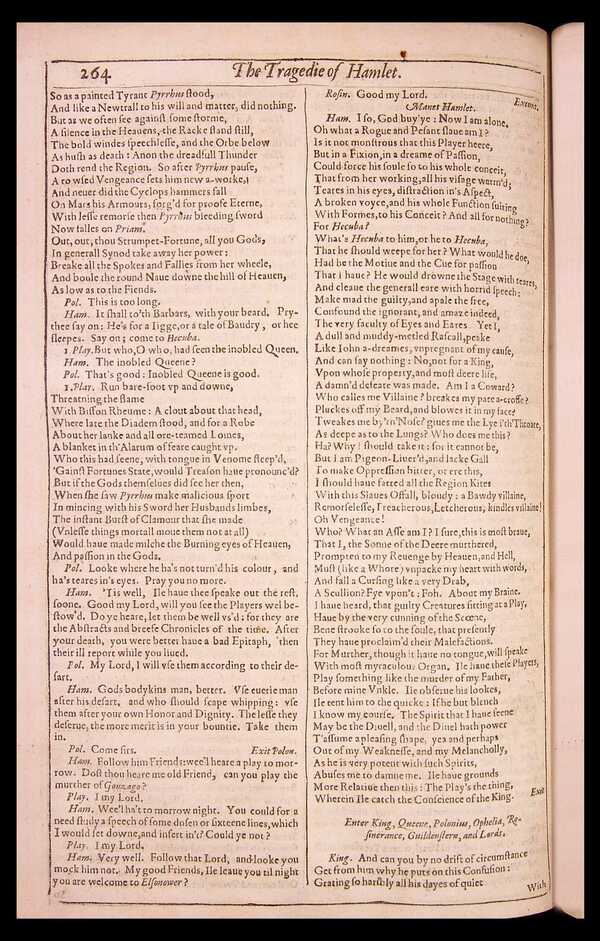 264
The Tragedie of Hamlet.
So as a painted Tyrant Pyrrhus ſtood,
And like a Newtrall to his will and matter, did nothing.
But as we often ſee againſt ſome ſtorme,
A ſilence in the Heauens, the Racke ſtand ſtill,
The bold windes ſpeechleſſe, and the Orbe below
As huſh as death: Anon the dreadfull Thunder
Doth rend the Region. So after Pyrrhus pauſe,
A rowſed Vengeance ſets him new a-worke,
And neuer did the Cyclops hammers fall
On Mars his Armours, forg'd for proofe Eterne,
With leſſe remorſe then Pyrrhus bleeding ſword
Now falles on Priam.
Out, out, thou Strumpet-Fortune, all you Gods,
In generall Synod take away her power:
Breake all the Spokes and Fallies from her wheele,
And boule the round Naue downe the hill of Heauen,
As low as to the Fiends.
Pol. This is too long.
Ham. It ſhall to'th Barbars, with your beard. Pry-
thee ſay on: He's for a Iigge, or a tale of Baudry, or hee
ſleepes. Say on; come to Hecuba.
1.Play. But who, O who, had ſeen the inobled Queen.
Ham. The inobled Queene?
Pol. That's good: Inobled Queene is good.
1.Play. Run bare-foot vp and downe,
Threatning the flame
With Biſſon Rheume: A clout about that head,
Where late the Diadem ſtood, and for a Robe
About her lanke and all ore-teamed Loines,
A blanket in th'Alarum of feare caught vp.
Who this had ſeene, with tongue in Venome ſteep'd,
'Gainſt Fortunes State, would Treaſon haue pronounc'd?
But if the Gods themſelues did ſee her then,
When ſhe ſaw Pyrrhus make malicious ſport
In mincing with his Sword her Husbands limbes,
The inſtant Burſt of Clamour that ſhe made
(Vnleſſe things mortall moue them not at all)
Would haue made milche the Burning eyes of Heauen,
And paſſion in the Gods.
Pol. Looke where he ha's not turn'd his colour, and
ha's teares in's eyes. Pray you no more.
Ham. 'Tis well, Ile haue thee ſpeake out the reſt,
ſoone. Good my Lord, will you ſee the Players wel be-
ſtow'd. Do ye heare, let them be well vs'd: for they are
the Abſtracts and breefe Chronicles of the time. After
your death, you were better haue a bad Epitaph, then
their ill report while you liued.
Pol. My Lord, I will vſe them according to their de-
ſart.
Ham. Gods bodykins man, better. Vſe euerie man
after his deſart, and who ſhould ſcape whipping: vſe
them after your own Honor and Dignity. The leſſe they
deſerue, the more merit is in your bountie. Take them
in.
Pol. Come ſirs. Exit Polon.
Ham. Follow him Friends: wee'l heare a play to mor-
row. Doſt thou heare me old Friend, can you play the
murther of Gonzago?
Play. I my Lord.
Ham. Wee'l ha't to morrow night. You could for a
need ſtudy a ſpeech of ſome doſen or ſixteene lines, which
I would ſet downe, and inſert in't? Could ye not?
Play. I my Lord.
Ham. Very well. Follow that Lord, and looke you
mock him not. My good Friends, Ile leaue you til night
you are welcome to Elſonower?
Roſin. Good my Lord. Exeunt.
Manet Hamlet.
Ham. I ſo, God buy'ye: Now I am alone.
Oh what a Rogue and Peſant ſlaue am I?
Is it not monſtrous that this Player heere,
But in a Fixion, in a dreame of Paſſion,
Could force his ſoule ſo to his whole conceit,
That from her working, all his viſage warm'd;
Teares in his eyes, diſtraction in's Aſpect,
A broken voyce, and his whole Function ſuiting
With Formes, to his Conceit? And all for nothing?
For Hecuba?
What's Hecuba to him, or he to Hecuba,
That he ſhould weepe for her? What would he doe,
Had he the Motiue and the Cue for paſſion
That I haue? He would drowne the Stage with teares,
And cleaue the generall eare with horrid ſpeech:
Make mad the guilty, and apale the free,
Confound the ignorant, and amaze indeed,
The very faculty of Eyes and Eares. Yet I,
A dull and muddy-metled Raſcall, peake
Like Iohn a-dreames, vnpregnant of my cauſe,
And can ſay nothing: No, not for a King,
Vpon whoſe property, and moſt deere life,
A damn'd defeate was made. Am I a Coward?
Who calles me Villaine? breakes my pate a-croſſe?
Pluckes off my Beard, and blowes it in my face?
Tweakes me by'th'Noſe? giues me the Lye i'th'Throate,
As deepe as to the Lungs? Who does me this?
Ha? Why I ſhould take it: for it cannot be,
But I am Pigeon-Liuer'd, and lacke Gall
To make Oppreſſion bitter, or ere this,
I ſhould haue fatted all the Region Kites
With this Slaues Offall, bloudy: a Bawdy villaine,
Remorſeleſſe, Treacherous, Letcherous, kindles villaine!
Oh Vengeance!
Who? What an Aſſe am I? I ſure, this is moſt braue,
That I, the Sonne of the Deere murthered,
Prompted to my Reuenge by Heauen, and Hell,
Muſt (like a Whore) vnpacke my heart with words,
And fall a Curſing like a very Drab,
A Scullion? Fye vpon't: Foh. About my Braine.
I haue heard, that guilty Creatures ſitting at a Play,
Haue by the very cunning of the Scœne,
Bene ſtrooke ſo to the ſoule, that preſently
They haue proclaim'd their Malefactions.
For Murther, though it haue no tongue, will ſpeake
With moſt myraculous Organ. Ile haue theſe Players,
Play ſomething like the murder of my Father,
Before mine Vnkle. Ile obſerue his lookes,
Ile tent him to the quicke: If he but blench
I know my courſe. The Spirit that I haue ſeene
May be the Diuell, and the Diuel hath power
T'aſſume a pleaſing ſhape, yea and perhaps
Out of my Weakneſſe, and my Melancholly,
As he is very potent with ſuch Spirits,
Abuſes me to damne me. Ile haue grounds
More Relatiue then this: The Play's the thing,
Wherein Ile catch the Conſcience of the King. Exit
Enter King, Queene, Polonius, Ophelia, Ro-
ſincrance, Guildenſtern, and Lords.
King. And can you by no drift of circumſtance
Get from him why he puts on this Confuſion:
Grating ſo harſhly all his dayes of quiet
With